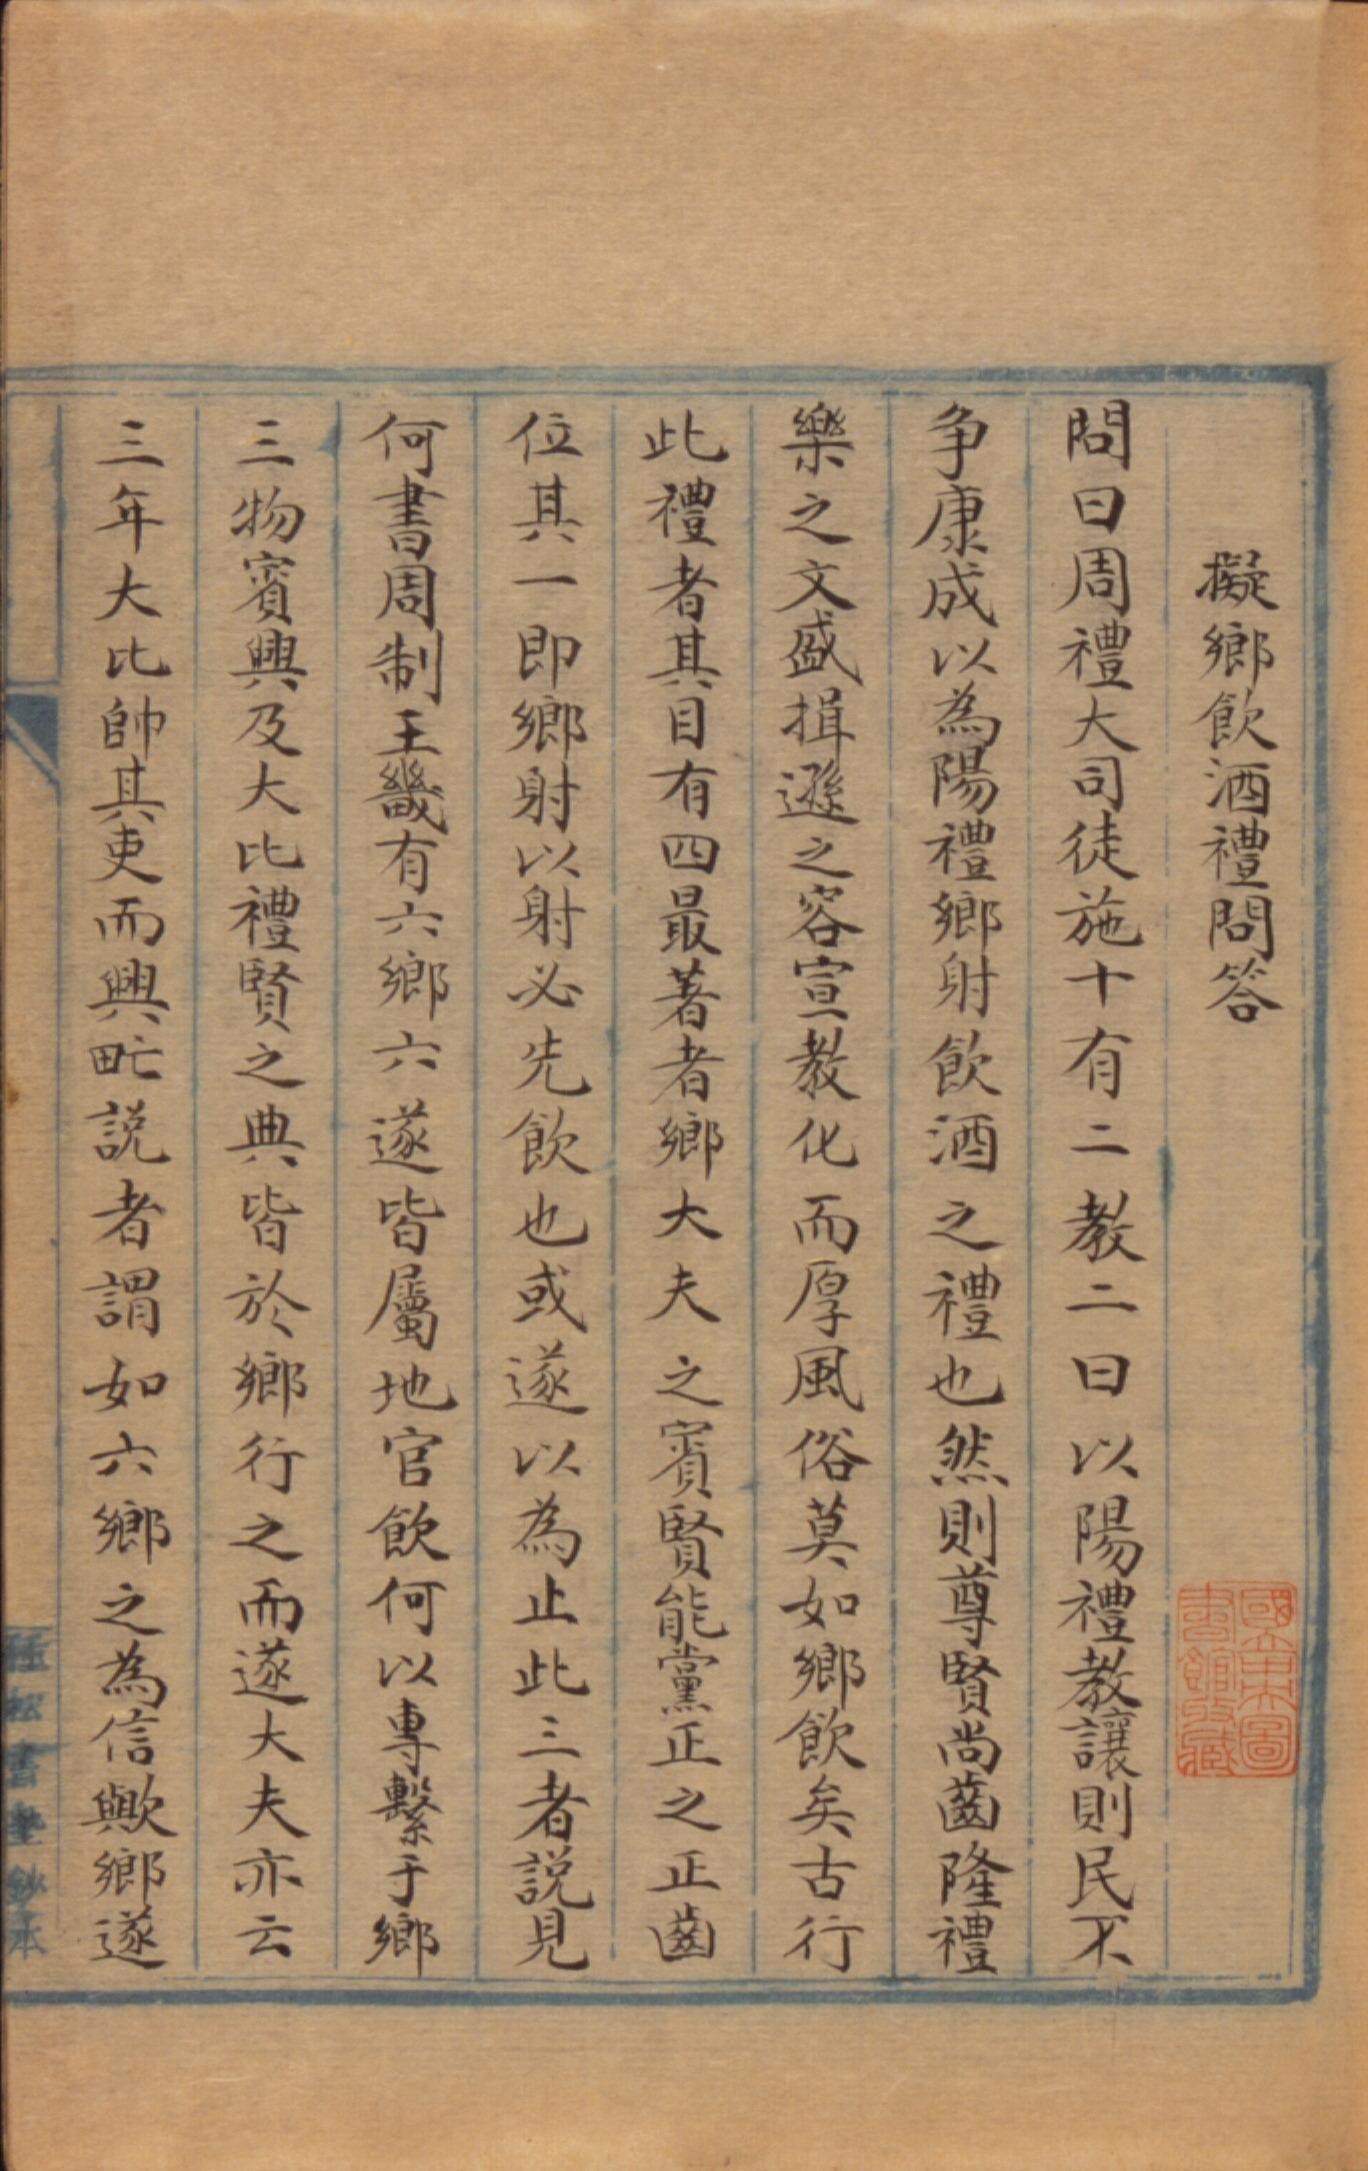 擬鄉飲酒禮問答
問曰周禮大司徒施十有二教二曰以陽禮教讓則民不
争康成以為陽禮鄉射飲酒之禮也然則尊賢尚齒隆禮
樂之文盛揖遜之容宣教化而厚風俗莫如鄉飲矣古行
此禮者其目有四最著者鄉大夫之賓賢能黨正之正齒
位其一即鄉射以射必先飲也或遂以為止此三者說見
何書周制王畿有六鄉六遂皆屬地官飲何以專繫于鄉
三物賓興及大比禮賢之典皆於鄉行之而遂大夫亦云
三年大比帥其吏而興甿説者謂如六鄉之為信歟鄉遂
國立中央圖
書館收藏
書 鈔本